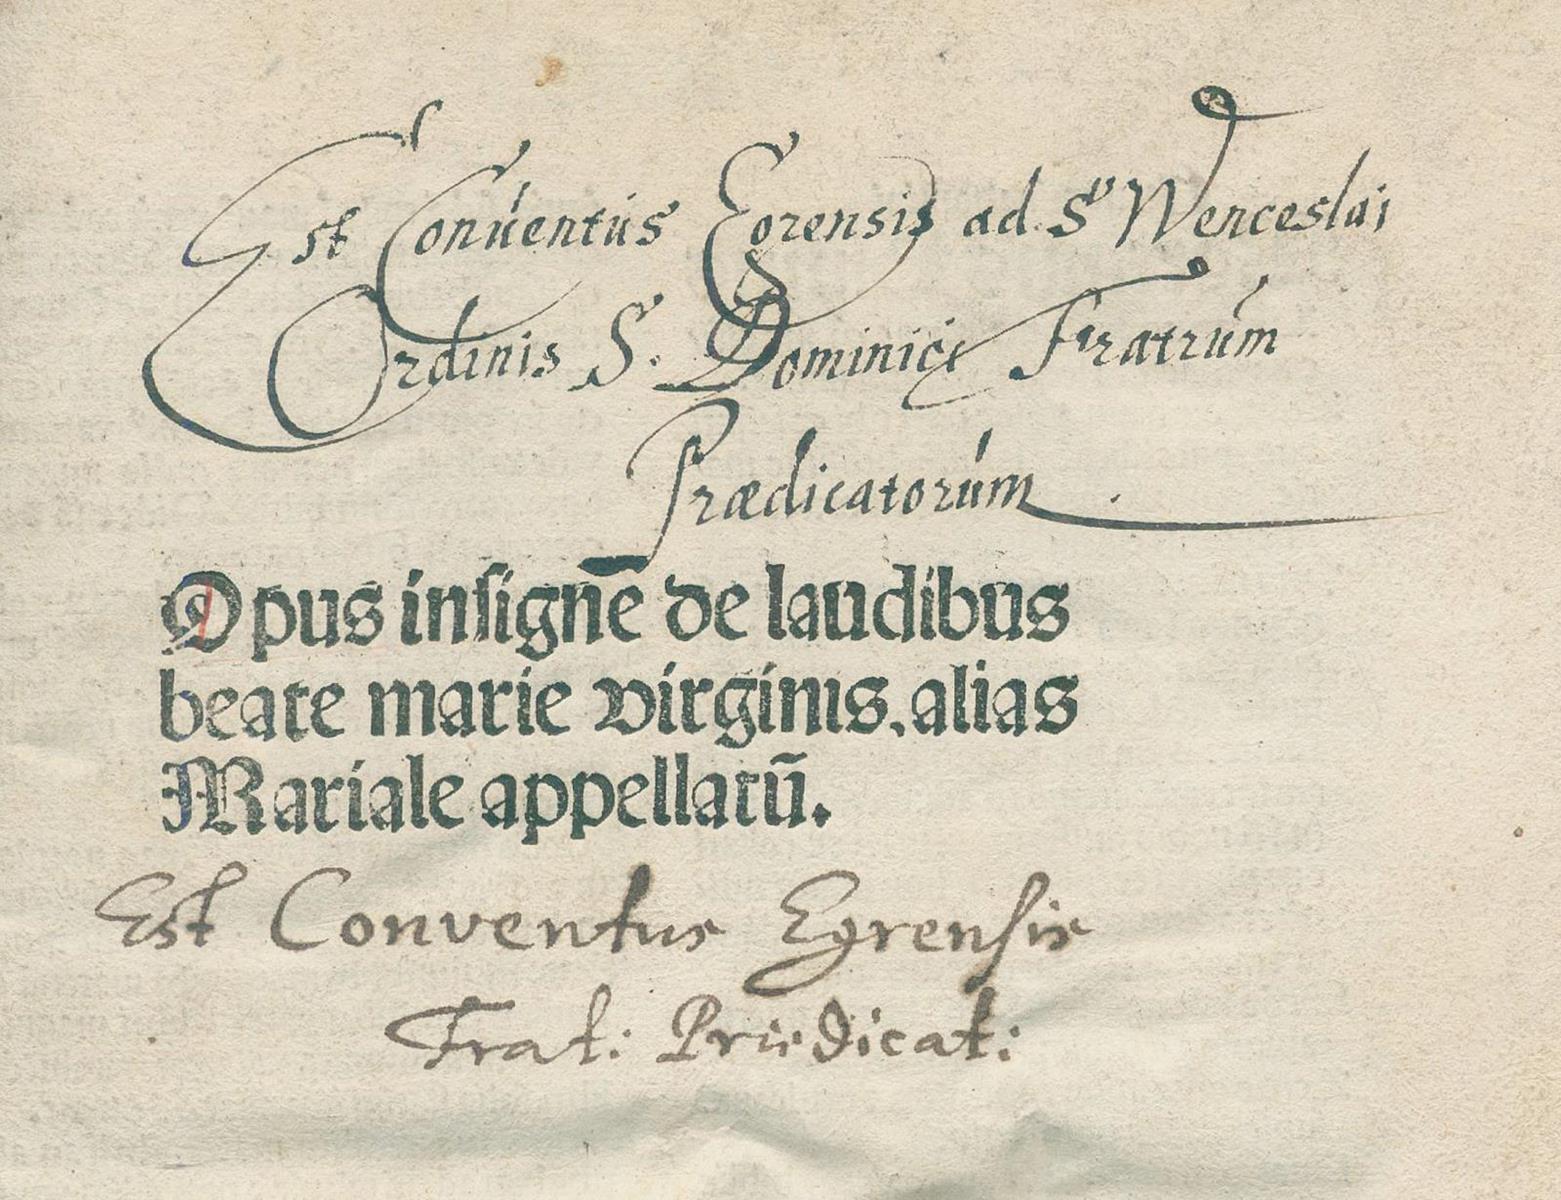 Est Conúentús Egrensis ad S. Wenceslai
Ordinis S. Dominici Fratrúm
Prædicatorúm
Opus insignē de laudibus
beate marie virginis. alias
Mariale appellatū.
Est Conventus Egrensis
Frat: Prædicat: